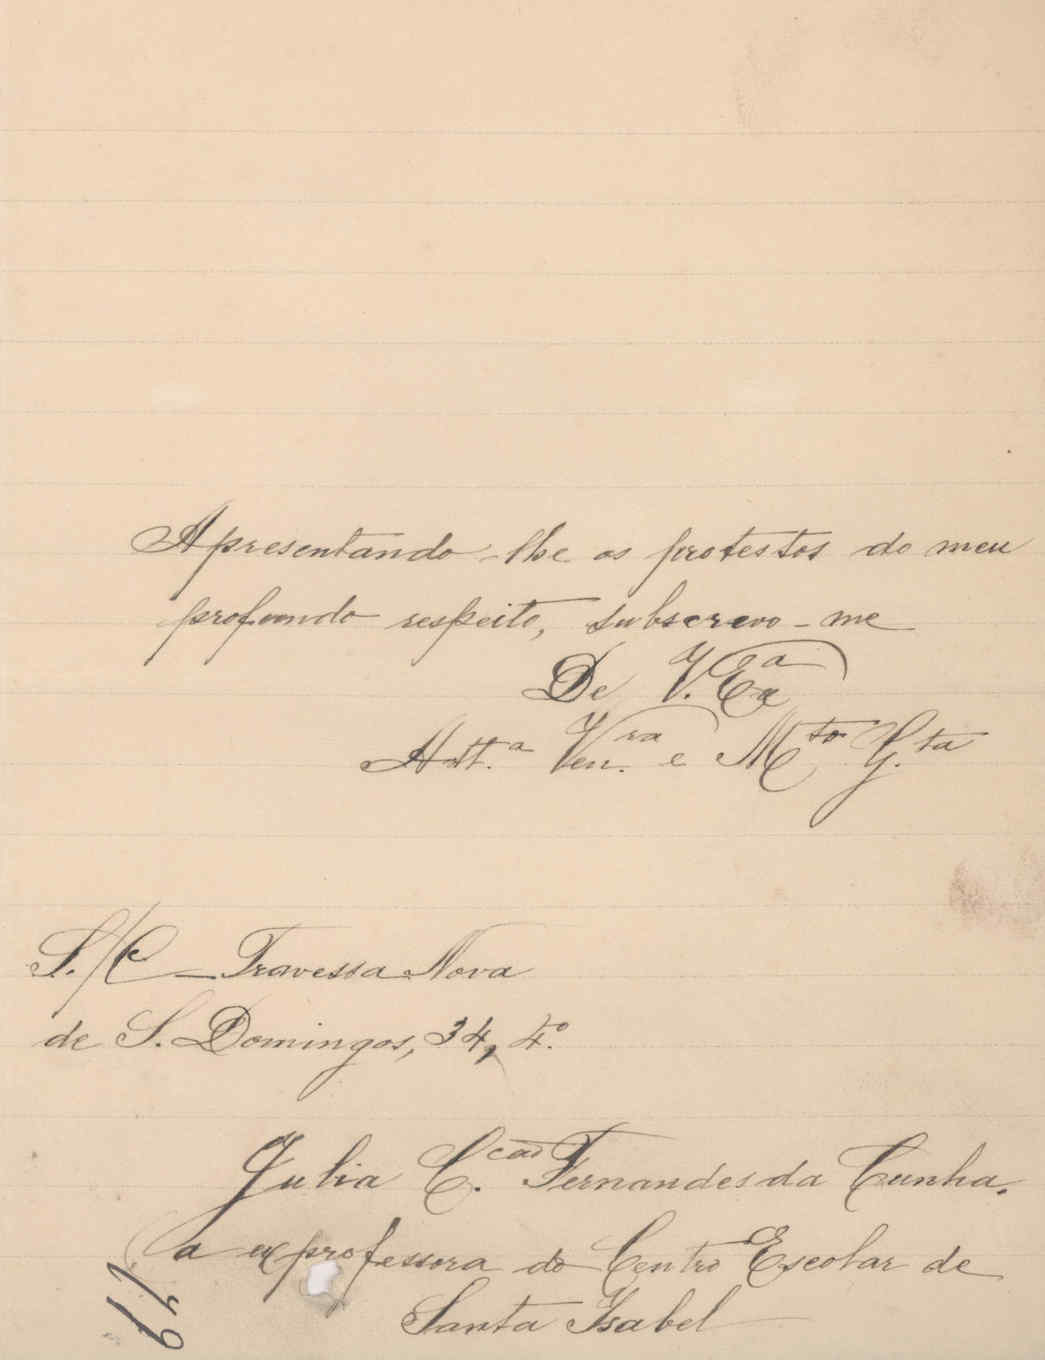 Apresentando-lhe os protestos do meu
profundo respeito, subscrevo-me
De V. Exª
Att.ª Ven.ra e Mto G.ta
S./C – Travessa Nova
de S. Domingos, 34, 4.º
Julia C.cão Fernandes da Cunha.
a ex professora do Centro Escolar de
Santa Isabel